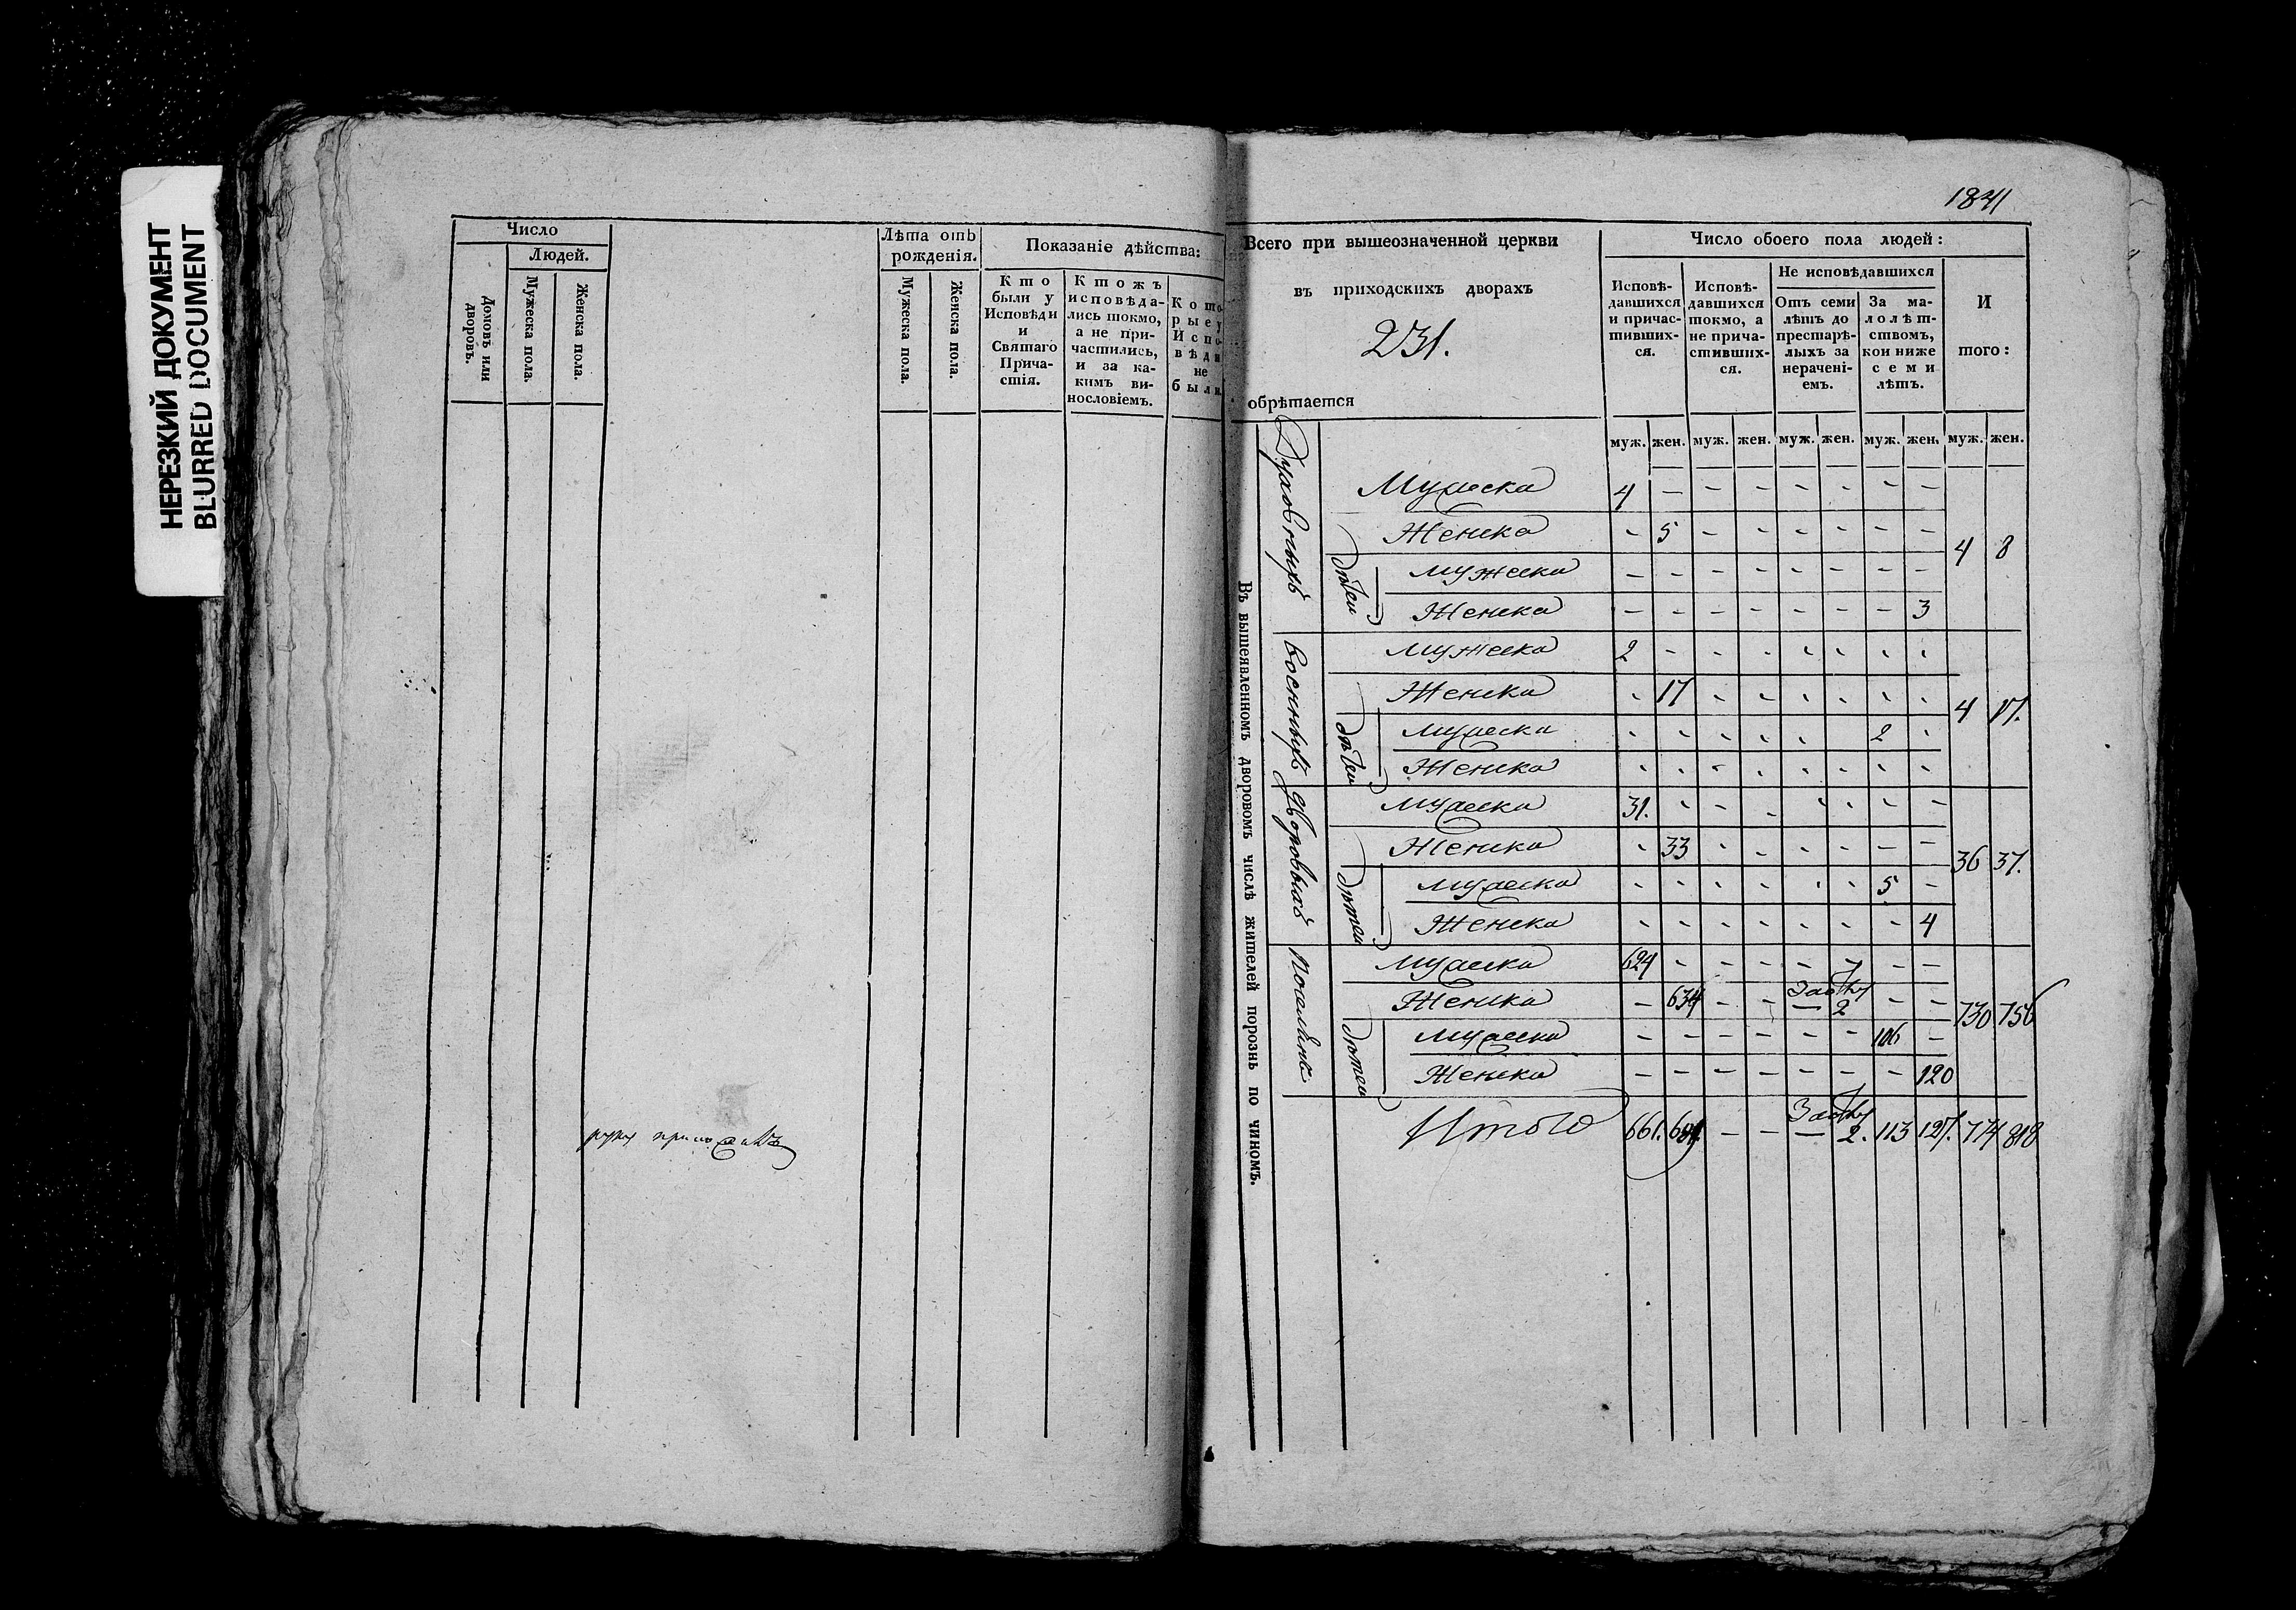 НЕРЕЗКИЙ ДОКУМЕНТ
BLURRED DOCUMENT
Число
Людей.
Домовъ или дворовъ.
Мужеска пола.
Женска пола.
Лѣта отъ рожденія.
Мужеска пола.
Женска пола.
Показаніе дѣйства:
Кто были у Исповѣди и Святаго Причастія.
Ктожъ исповѣдались токмо, а не причастились, и за какимъ винословіемъ.
Которые у Исповѣди не были
руку приложилъ
1841
Всего при вышеозначенной церкви
въ приходскихъ дворахъ
231.
обрѣтается
Число обоего пола людей:
Исповѣдавшихся и причастившихся.
Исповѣдавшихся токмо, а не причастившихся.
Не исповѣдавшихся
Отъ семи лѣтъ до престарѣлыхъ за нерачені-емъ.
За малолѣтствомъ, кои ниже семи лѣтъ.
И того:
муж. жен. муж. жен. муж. жен. муж. жен. муж. жен.
Въ вышеявленномъ дворовомъ числѣ жителей порознь по чиномъ.
Духовныхъ
Мужеска 4 - - - - - - -
Женска - 5 - - - - - -
4 8
дѣтей
Мужеска - - - - - - - -
Женска - - - - - - - 3
Военныхъ
Мужеска 2 - - - - - - -
Женска - 17 - - - - - -
4 17.
дѣтей
Мужеска - - - - - - 2 -
Женска - - - - - - - -
Дворовыхъ
Мужеска 31. - - - - - - -
Женска - 33 - - - - - -
36 37.
дѣтей
Мужеска - - - - - - 5 -
Женска - - - - - - - 4
Поселянъ
Мужеска 624 - - - - - - -
Женска - 634 - - - 2 - -
730 756
дѣтей
Мужеска - - - - - - 106 -
Женска - - - - - - - 120
Итого 661. 689. - - - 2. 113 127. 774 818